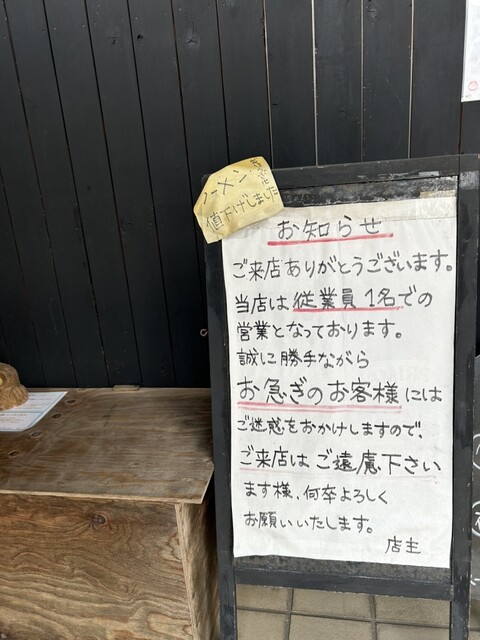 ラーメン
値下げしました
お知らせ
ご来店ありがとうございます。
当店は従業員1名での
営業となっております。
誠に勝手ながら
お急ぎのお客様には
ご迷惑をおかけしますので、
ご来店はご遠慮下さい
ます様、何卒よろしく
お願いいたします。
店主